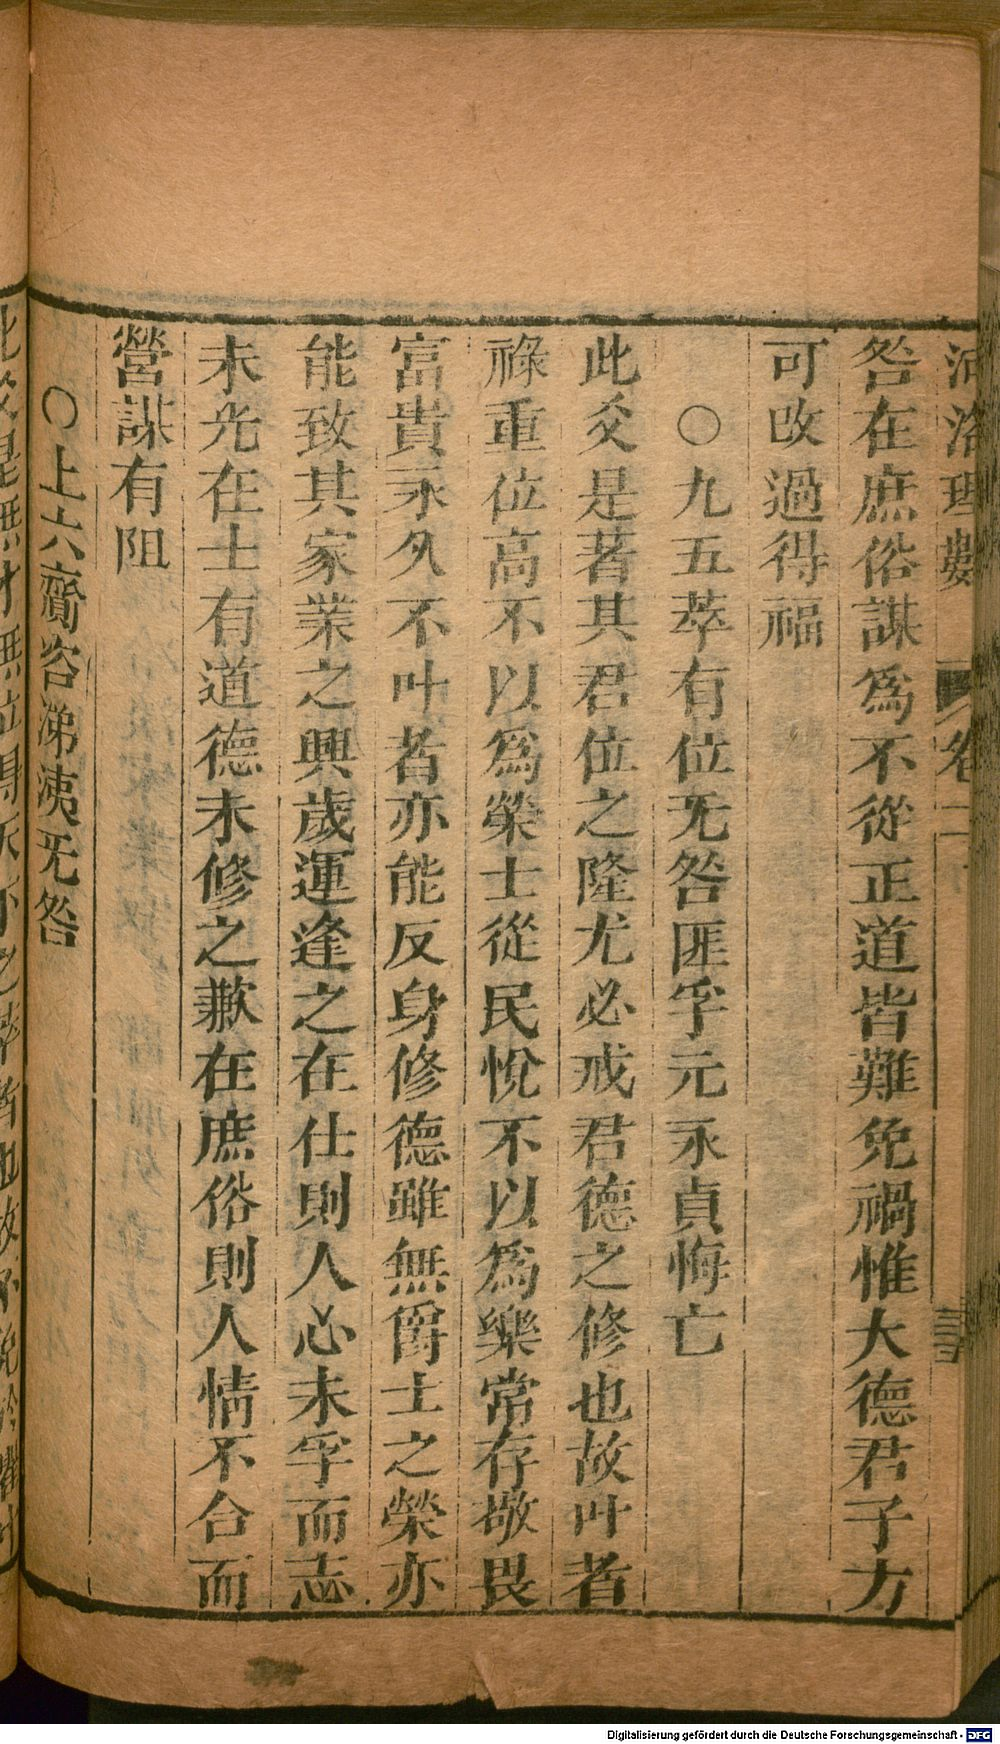 河洛理數 卷二
咎在庶俗謀爲不從正道皆難免禍惟大德君子方
可改過得福
○九五萃有位无咎匪孚元永貞悔亡
此爻是著其君位之隆尤必戒君德之修也故叶者
祿重位高不以爲榮士從民悅不以爲樂常存敬畏
富貴永久不叶者亦能反身修德雖無爵士之榮亦
能致其家業之興歲運逢之在仕則人心未孚而志
未光在士有道德未修之歉在庶俗則人情不合而
營謀有阻
○上六齎咨涕洟无咎
Digitalisierung gefördert durch die Deutsche Forschungsgemeinschaft - DFG